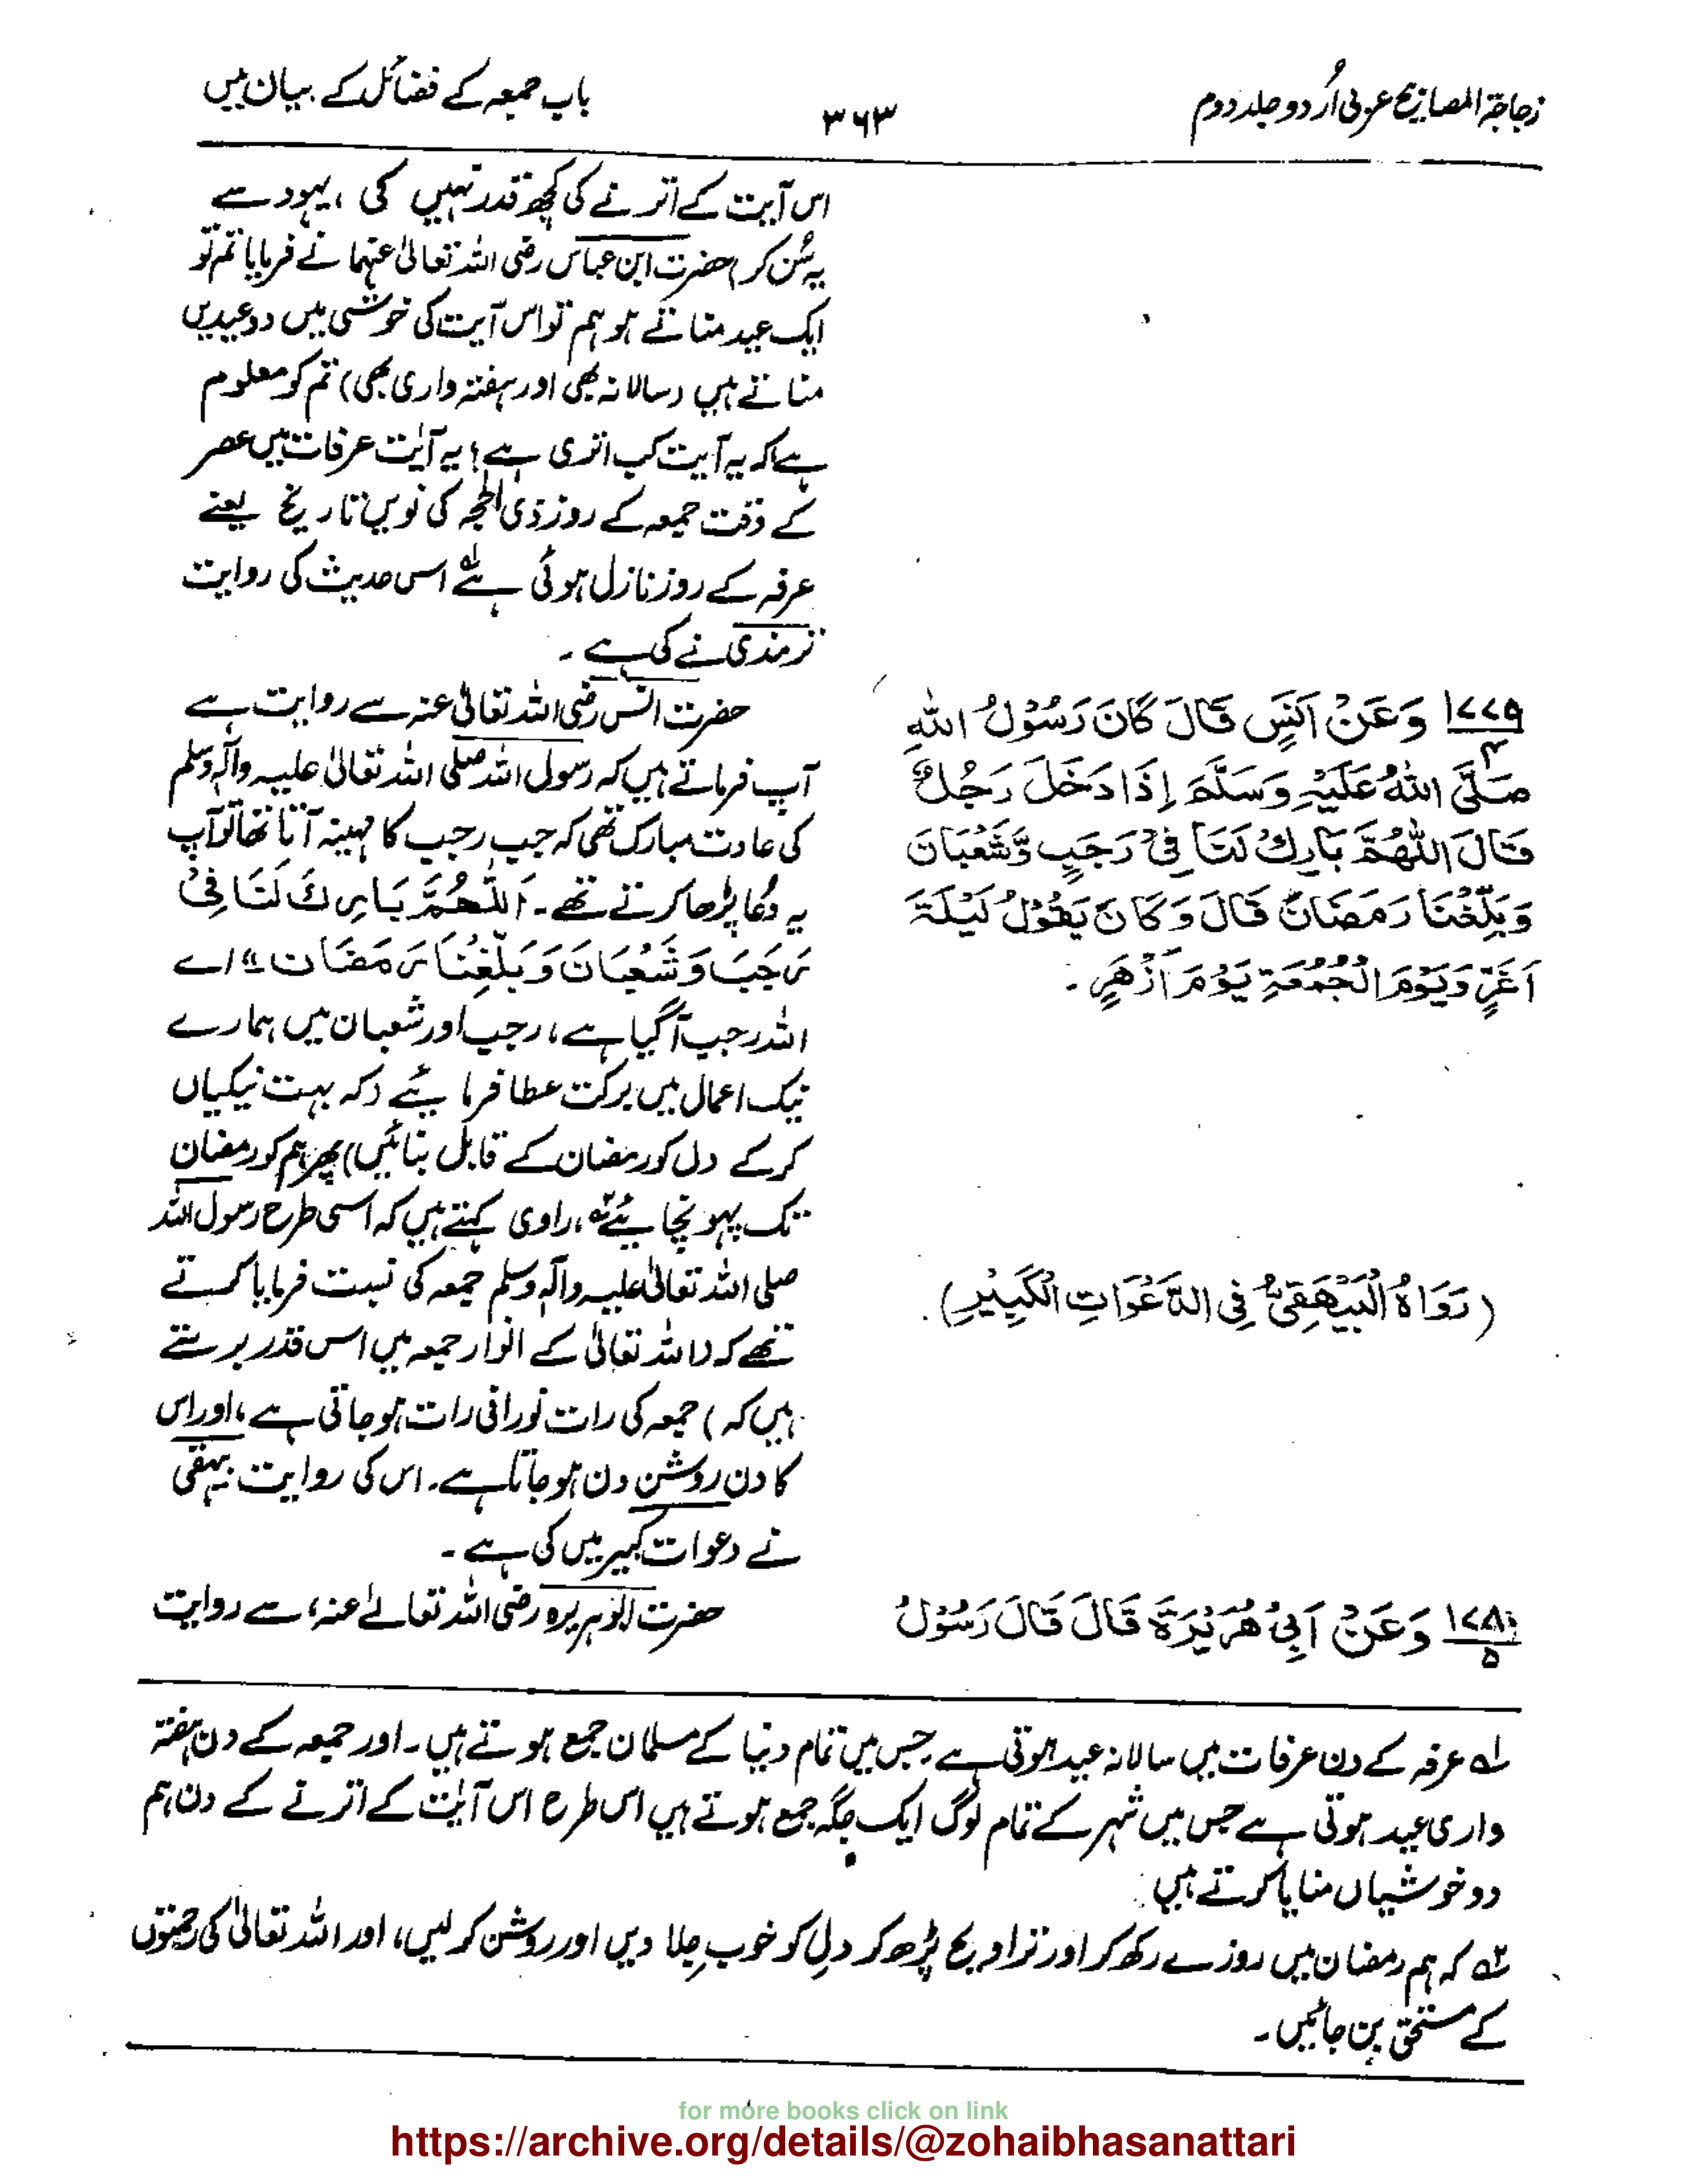 زجاجۃ المصابیح عربی اُردو جلد دوم
۳۶۳
باب جمعہ کے فضائل کے بیان میں
اس آیت کے اترنے کی کچھ قدر نہیں کی، یہود سے
یہ سُن کر) حضرت ابن عباس رضی اللہ تعالیٰ عنہما نے فرمایا تم تو
ایک عید مناتے ہو ہم تو اس آیت کی خوشی میں دو عیدیں
مناتے ہیں (سالانہ بھی اور ہفتہ واری بھی) تم کو معلوم
ہے کہ یہ آیت کب اتری ہے؟ یہ آیت عرفات میں عصر
کے وقت جمعہ کے روز ذی الحجہ کی نویں تاریخ یعنے
عرفہ کے روز نازل ہوئی ہے لہ اس حدیث کی روایت
ترمذی نے کی ہے۔
۱۷۷۹ وَعَنْ اَنَسٍ قَالَ كَانَ رَسُوْلُ اللهِ
۴
صَلَّى اللهُ عَلَيْهِ وَسَلَّمَ اِذَا دَخَلَ رَجُلٌ
قَالَ اللّٰهُمَّ بَارِكْ لَنَا فِيْ رَجَبٍ وَّشَعْبَانَ
وَبَلِّغْنَا رَمَضَانَ قَالَ وَكَانَ يَقُوْلُ لَيْلَةَ
اَغَرٍّ وَيَوْمَ الْجُمُعَةِ يَوْمَ اَزْهَرٍ۔
(رَوَاهُ الْبَيْهَقِيُّ فِي الدَّعْوَاتِ الْكَبِيْرِ).
حضرت انس رضی اللہ تعالیٰ عنہ سے روایت ہے
آپ فرماتے ہیں کہ رسول اللہ صلی اللہ تعالیٰ علیہ وآلہ وسلم
کی عادت مبارک تھی کہ جب رجب کا مہینہ آتا تھا تو آپ
یہ دُعا پڑھا کرتے تھے۔ اَللّٰهُمَّ بَارِكْ لَنَا فِيْ
رَجَبَ وَشَعْبَانَ وَبَلِّغْنَا رَمَضَانَ" اے
اللہ رجب آگیا ہے، رجب اور شعبان میں ہمارے
نیک اعمال میں برکت عطا فرمایئے (کہ بہت نیکیاں
کرکے دل کو رمضان کے قابل بنائیں) پھر ہم کو رمضان
تک پہونچایئے ۲ہ، راوی کہتے ہیں کہ اسی طرح رسول اللہ
صلی اللہ تعالیٰ علیہ وآلہ وسلم جمعہ کی نسبت فرمایا کرتے
تھے کہ (اللہ تعالیٰ کے انوار جمعہ میں اس قدر برستے
ہیں کہ) جمعہ کی رات نورانی رات ہو جاتی ہے، اور اس
کا دن روشن دن ہو جاتا ہے۔ اس کی روایت بیہقی
نے دعوات کبیر میں کی ہے۔
۱۷۸۰ وَعَنْ اَبِيْ هُرَيْرَةَ قَالَ قَالَ رَسُوْلُ
۵
حضرت ابوہریرہ رضی اللہ تعالےٰ عنہ، سے روایت
لہ عرفہ کے دن عرفات میں سالانہ عید ہوتی ہے جس میں تمام دنیا کے مسلمان جمع ہوتے ہیں۔ اور جمعہ کے دن ہفتہ
واری عید ہوتی ہے جس میں شہر کے تمام لوگ ایک جگہ جمع ہوتے ہیں اس طرح اس آیت کے اترنے کے دن ہم
دو خوشیاں منایا کرتے ہیں
۲ہ کہ ہم رمضان میں روزے رکھ کر اور تراویح پڑھ کر دلِ کو خوب جِلا دیں اور روشن کر لیں، اور اللہ تعالیٰ کی رحمتوں
کے مستحق بن جائیں۔
for more books click on link
https://archive.org/details/@zohaibhasanattari